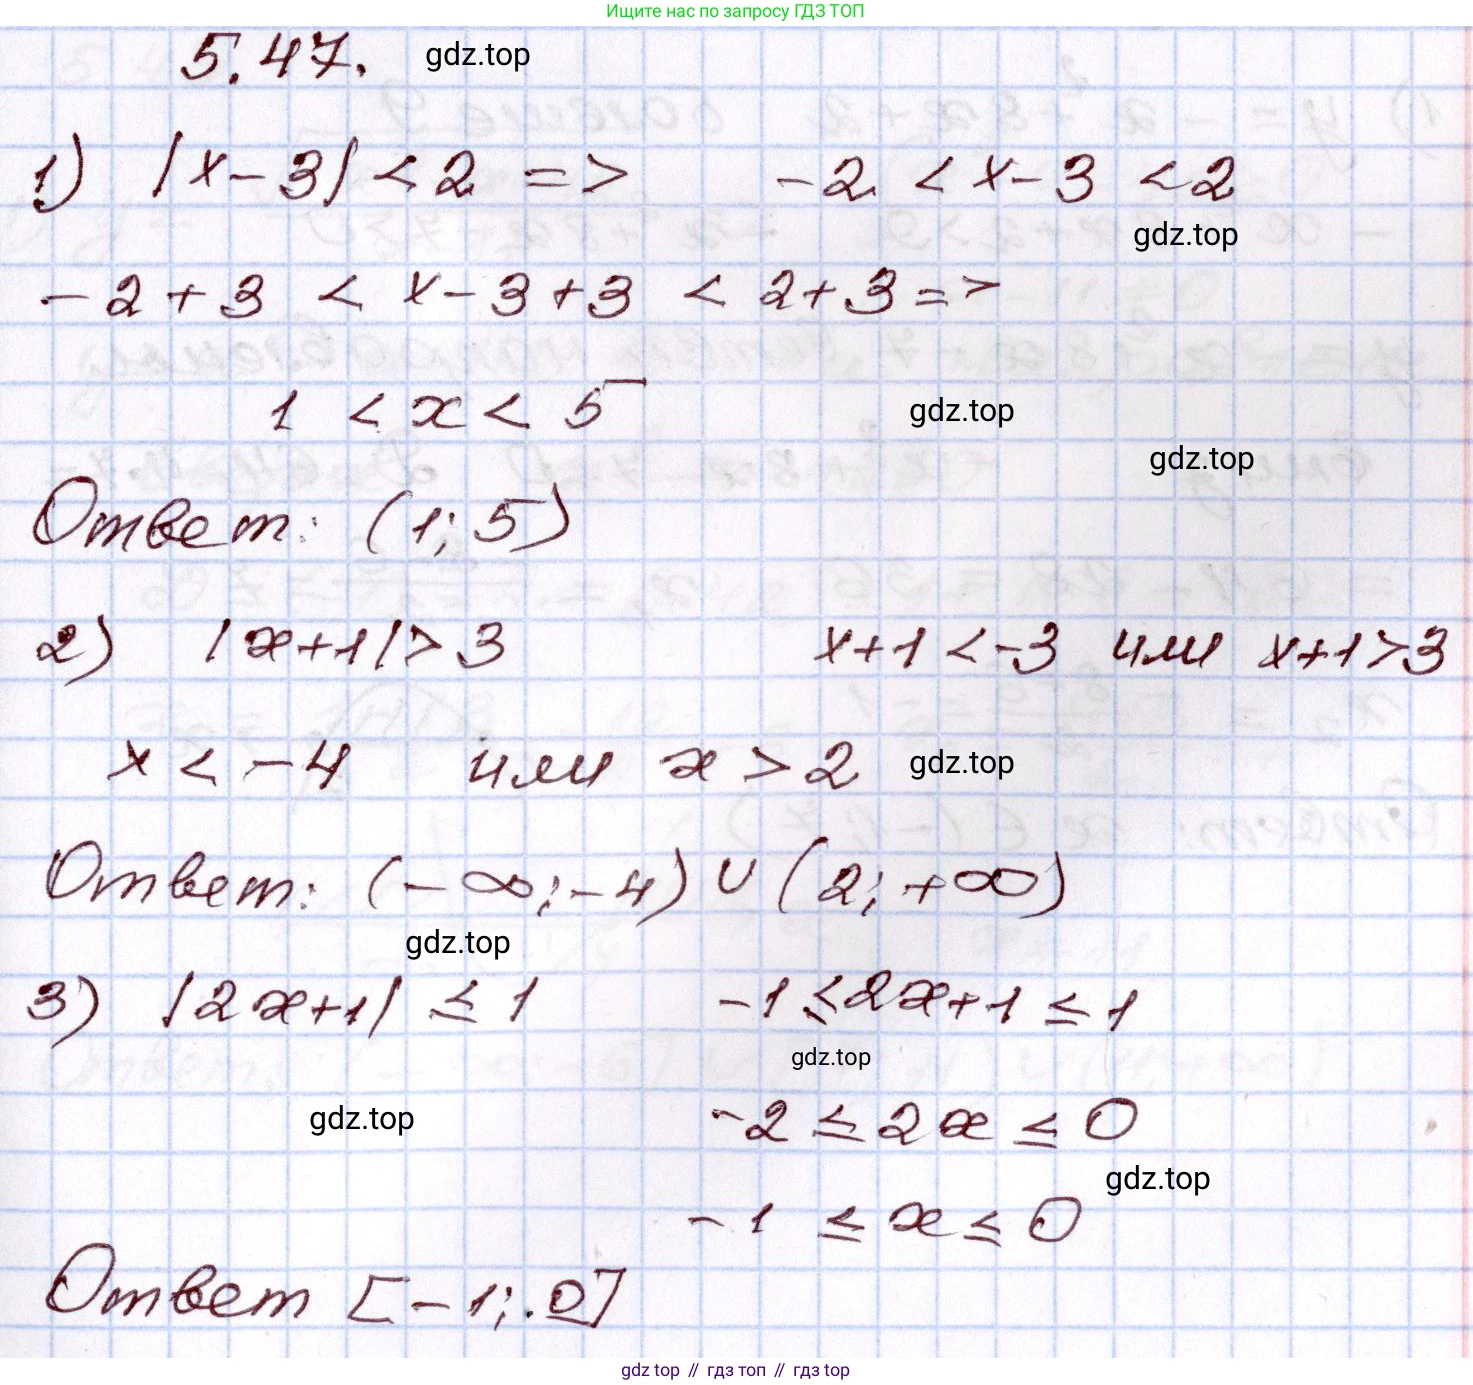 Ищите нас по запросу ГДЗ ТОП
5.47. gdz.top
1) |x-3|<2 => -2 < x-3 < 2
gdz.top
-2+3 < x-3+3 < 2+3 =>
1 < x < 5 gdz.top
gdz.top
Ответ: (1; 5)
2) |x+1|>3 x+1 <-3 или x+1>3
x < -4 или x > 2 gdz.top
Ответ: (-∞; -4) ∪ (2; +∞)
gdz.top
3) |2x+1| ≤ 1 -1 ≤ 2x+1 ≤ 1
gdz.top
gdz.top -2 ≤ 2x ≤ 0
gdz.top
-1 ≤ x ≤ 0
Ответ [-1; 0]
gdz top // гдз топ // гдз top